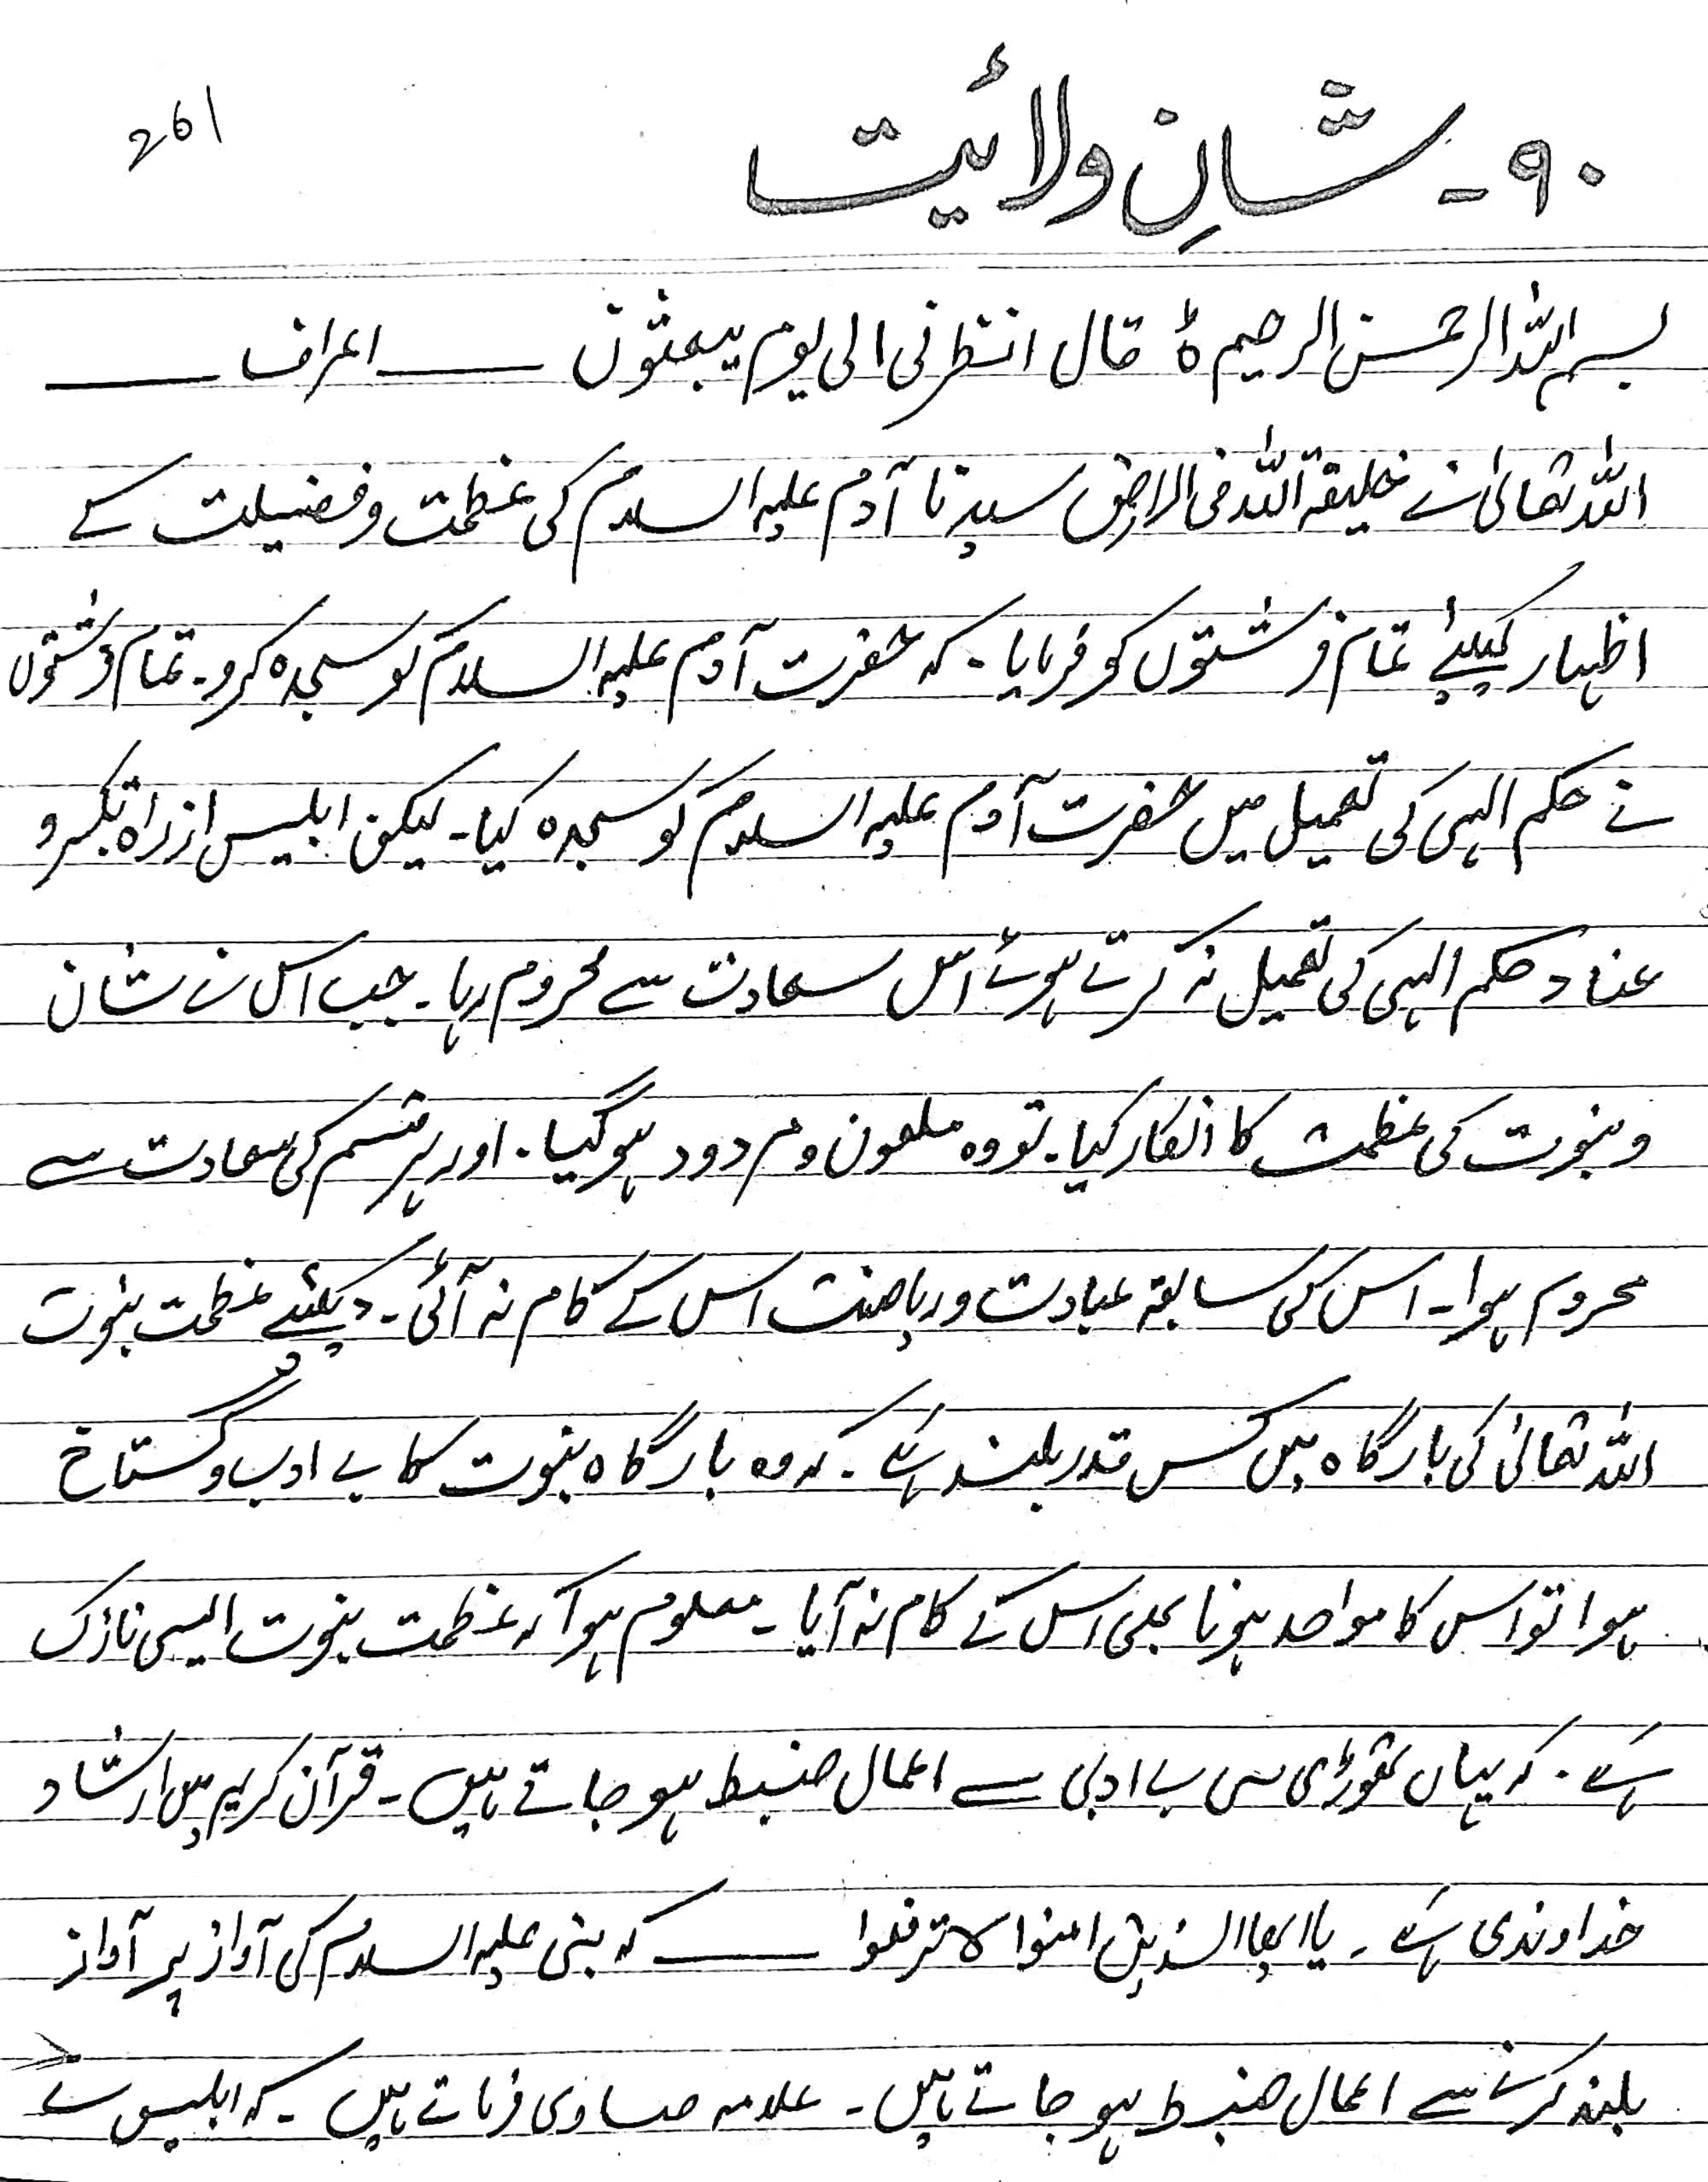 261
۹۰ - شانِ ولائیت
بسم اللہ الرحمٰن الرحیم ٥ قال انظرنی الی یوم یبعثون ــــــ اعراف ــــــ
اللہ تعالیٰ نے خلیفۃ اللہ فی الارض سیدنا آدم علیہ السلام کی عظمت و فضیلت کے
اظہار کیلئے تمام فرشتوں کو فرمایا۔ کہ حضرت آدم علیہ السلام کو سجدہ کرو۔ تمام فرشتوں
نے حکم الہی کی تعمیل میں حضرت آدم علیہ السلام کو سجدہ کیا۔ لیکن ابلیس از راہ تکبر و
عناد حکم الہی کی تعمیل نہ کرتے ہوئے اس سعادت سے محروم رہا۔ جب اس نے شان
و نبوت کی عظمت کا انکار کیا۔ تو وہ ملعون و مردود ہو گیا۔ اور ہر قسم کی سعادت سے
محروم ہوا۔ اس کی سابقہ عبادت و ریاضت اس کے کام نہ آئی۔ دیکھئے عظمت نبوت
اللہ تعالیٰ کی بارگاہ میں کس قدر بلند ہے۔ کہ وہ بارگاہ نبوت کا بے ادب و گستاخ
ہوا تو اس کا مواحد ہونا بھی اس کے کام نہ آیا۔ معلوم ہوا کہ عظمت نبوت ایسی نازک
ہے۔ کہ یہاں تھوڑی سی بے ادبی سے اعمال ضبط ہو جاتے ہیں۔ قرآن کریم میں ارشاد
خداوندی ہے۔ یا ایھا الذین امنوا لا ترفعوا ــــــ کہ نبی علیہ السلام کی آواز پر آواز
بلند کرنے سے اعمال ضبط ہو جاتے ہیں۔ علامہ صاوی فرماتے ہیں۔ کہ ابلیس نے